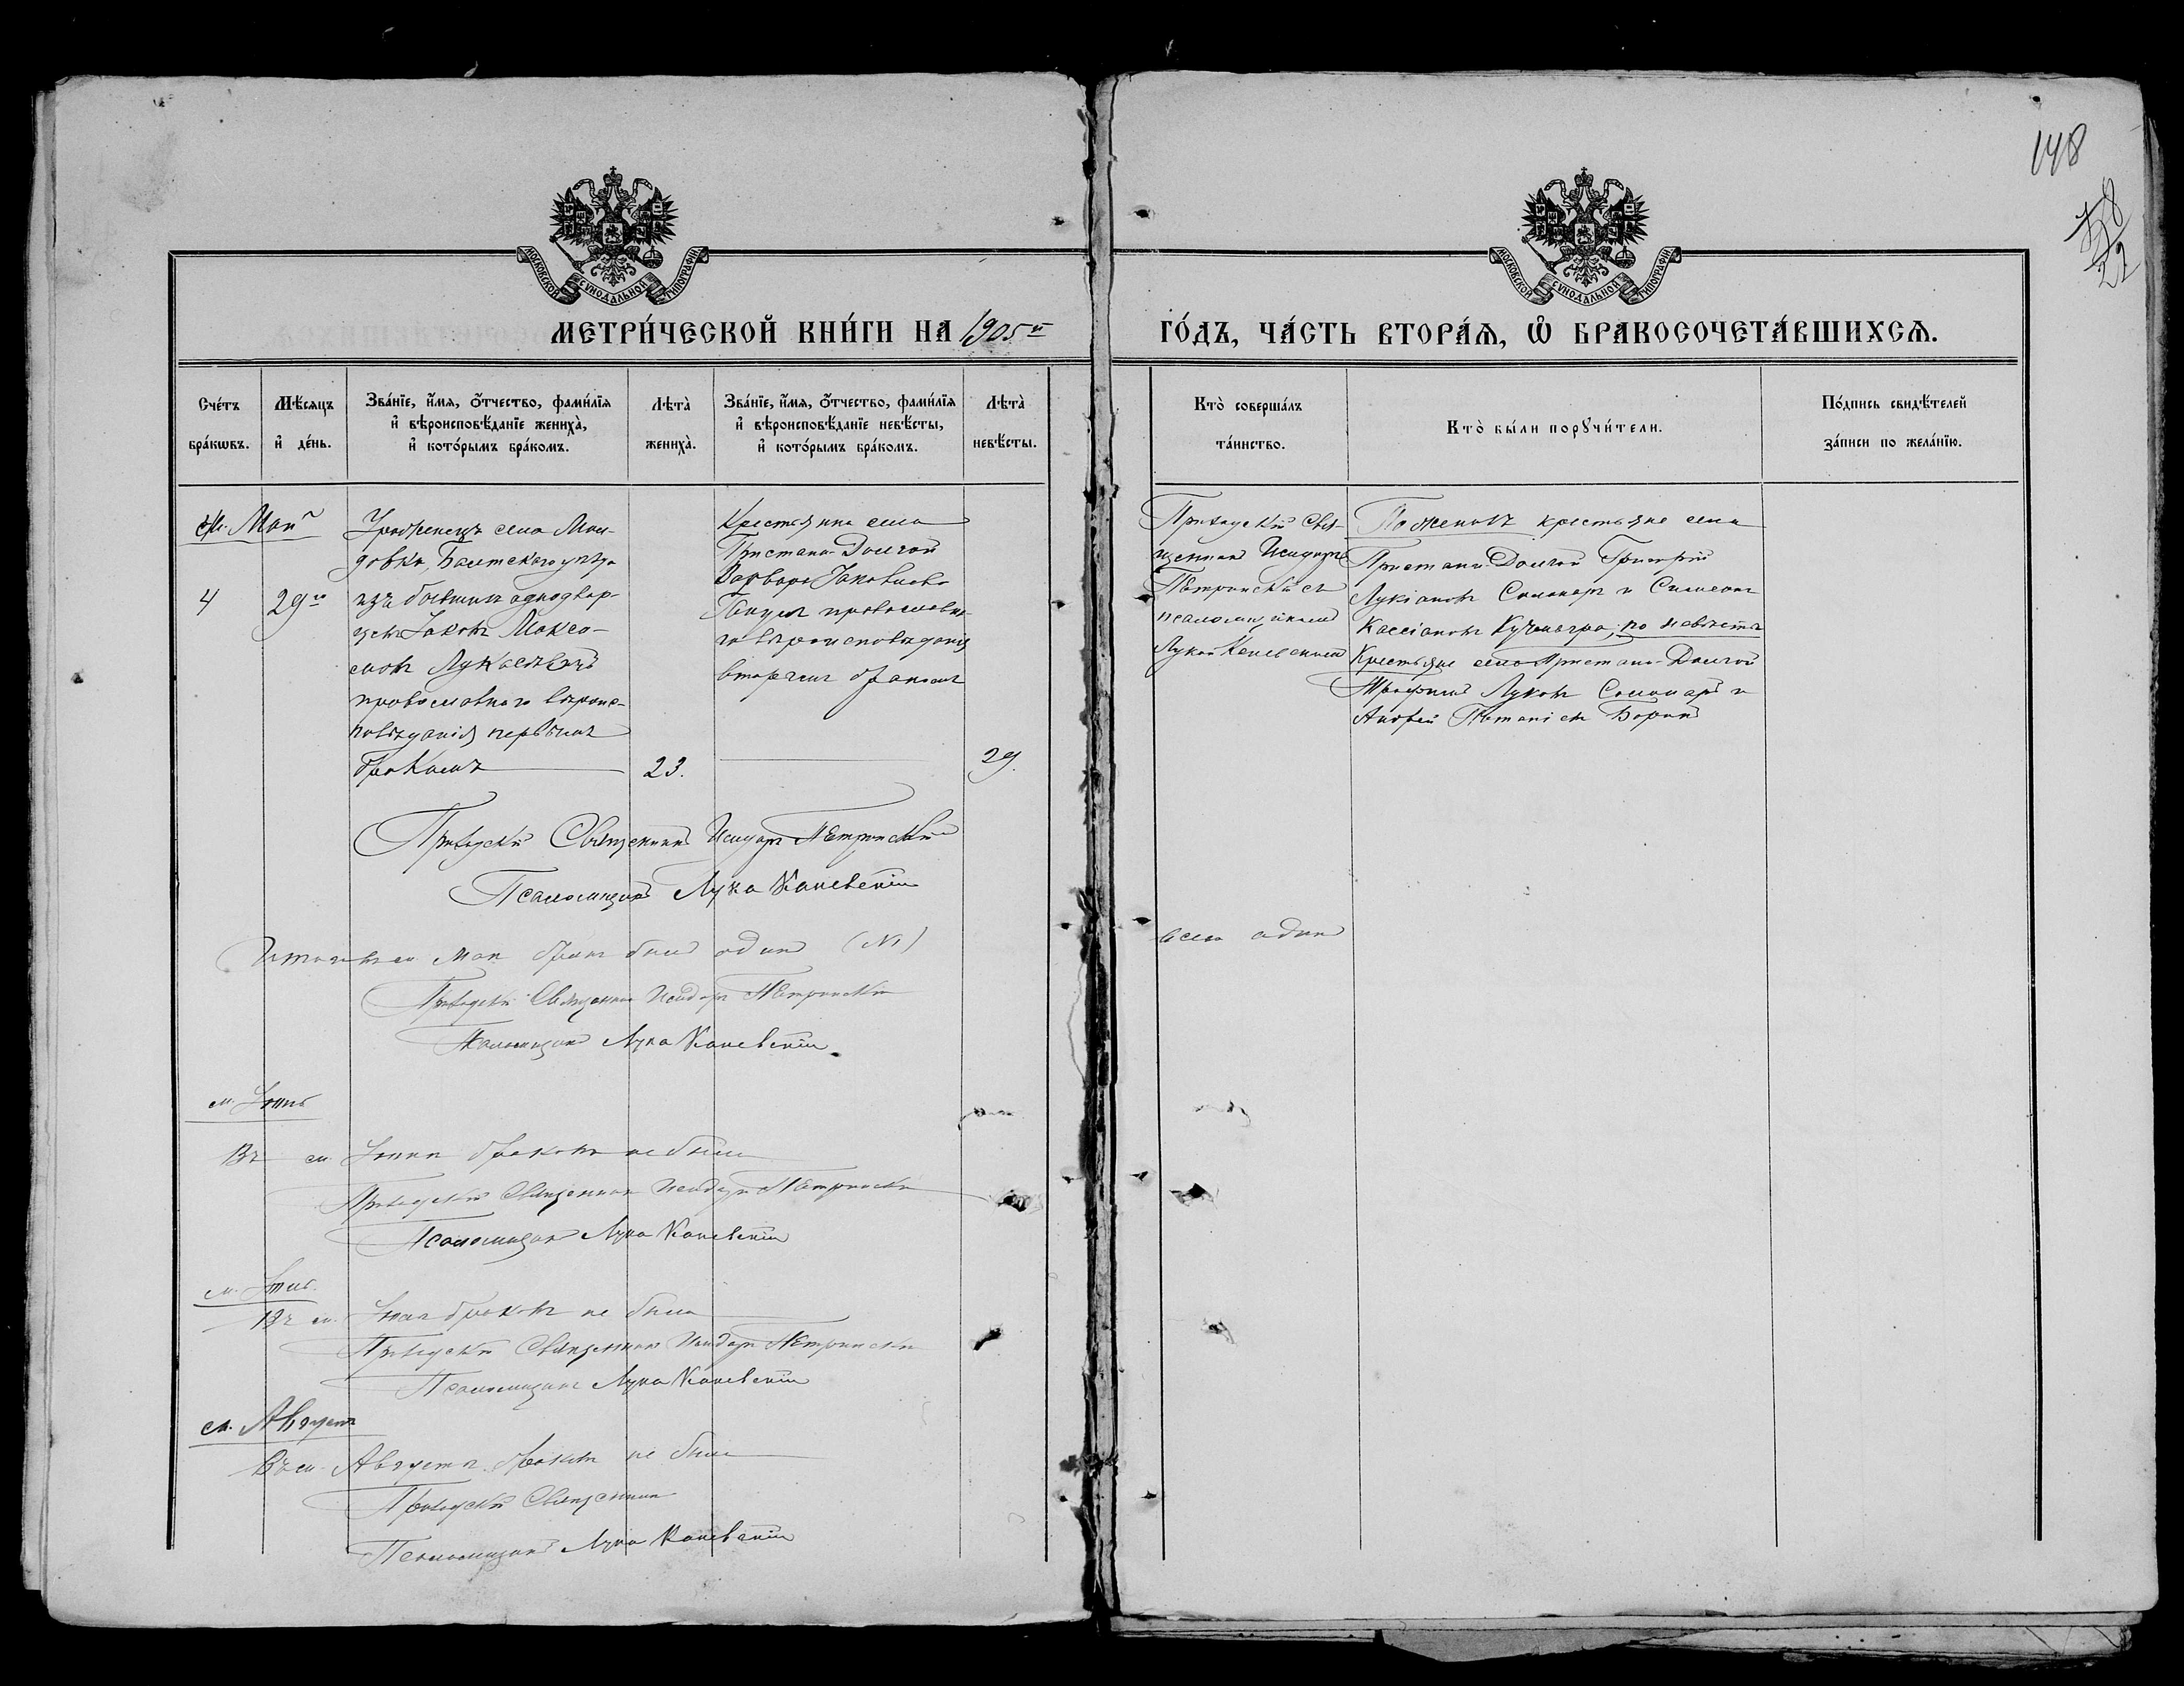 148
58
22
МОСКОВСКОЙ СѴНОДАЛЬНОЙ ТИПОГРАФІИ
МОСКОВСКОЙ СѴНОДАЛЬНОЙ ТИПОГРАФІИ
МЕТРИ́ЧЕСКОЙ КНИ́ГИ НА 1905й ГО́ДЪ, ЧА́СТЬ ВТОРА́Я, Ѡ҆ БРАКОСОЧЕТА́ВШИХСЯ.
Сче́тъ бра́кѡвъ.
Мѣ́сяцъ и҆ де́нь.
Зва́нїе, и҆́мя, ѻ҆́тчество, фами́лїя и҆ вѣроисповѣ́данїе жениха̀, и҆ кото́рымъ бра́комъ.
Лѣта̀ жениха̀.
Зва́нїе, и҆́мя, ѻ҆́тчество, фами́лїя и҆ вѣроисповѣ́данїе невѣ́сты, и҆ кото́рымъ бра́комъ.
Лѣта̀ невѣ́сты.
Кто̀ соверша́лъ та́инство.
Кто̀ бы́ли порꙋчи́тели.
По́дпись свидѣ́телей за́писи по жела́нїю.
м. Май
4
29го
Уроженецъ села
Балтскаго уѣзда
изъ бывшихъ однодвор-
цевъ Іаковъ Макси-
мовъ
православнаго вѣроис-
повѣданія первымъ
бракомъ
23.
Крестьянка села
Пристани-Долгой
Варвара Іаковлева
православна-
го вѣроисповѣданія
вторымъ бракомъ
29.
Приходскій Свя-
щенникъ Исидоръ
Петринскій съ
псаломщикомъ
Лукой Каневскимъ
По женихѣ крестьяне села
Пристани-Долгой Григорій
Лукіановъ Соломаръ и Симеонъ
Кассіановъ Кучмагра; по невѣстѣ
Крестьяне села Пристани-Долгой
Трофимъ Луковъ Соломаръ и
Андрей
Приходскій Священникъ Исидоръ Петринскій
Псаломщикъ Лука Каневскій
Итого въ м. Маѣ бракъ былъ одинъ (№1)
всего одинъ
Приходскій Священникъ Исидоръ Петринскій
Псаломщикъ Лука Каневскій
м. Іюнь
Въ м. Іюнѣ браковъ не было
Приходскій Священникъ Исидоръ Петринскій
Псаломщикъ Лука Каневскій
м. Іюль.
Въ м. Іюлѣ браковъ не было
Приходскій Священникъ Исидоръ Петринскій
Псаломщикъ Лука Каневскій
м. Августъ
Въ м. Августѣ браковъ не было
Приходскій Священникъ
Псаломщикъ Лука Каневскій